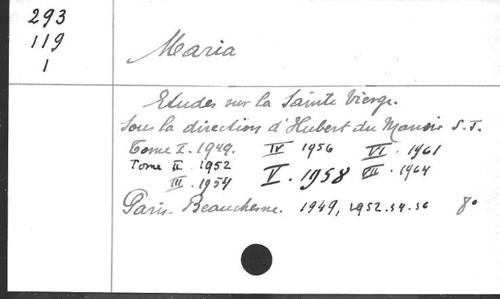 293
119
1
Maria
Etudes sur la Sainte Vierge.
Sous la direction d'Hubert du Manoir S.J.
Tome I. 1949. IV 1956 VI. 1961
Tome II. 1952 V. 1958 VII. 1964
III. 1954
Paris. Beauchesne. 1949, 1952.54.56 8°